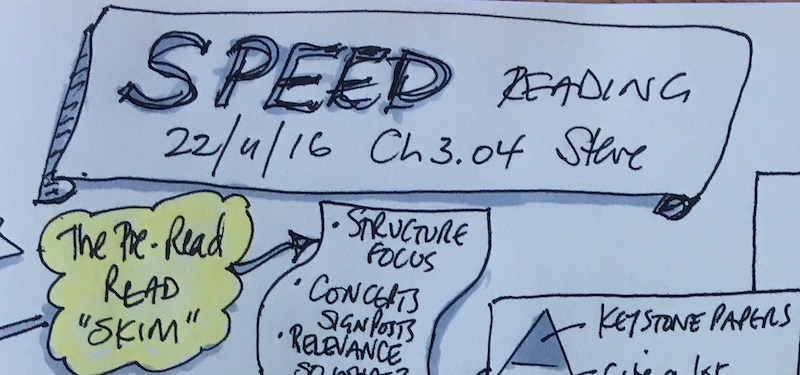 SPEED READING
22/4/16 Ch 3.04 Steve
The Pre-Read
READ
"SKIM"
• STRUCTURE
FOCUS
• CONCEPTS
SIGNPOSTS
• RELEVANCE
KEYSTONE PAPERS